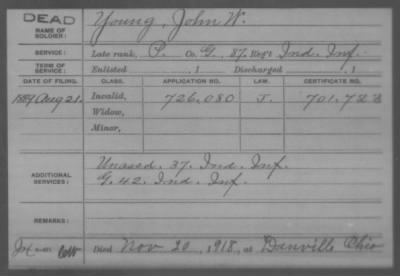 DEAD
NAME OF SOLDIER: Young, John W.
SERVICE: Late rank, P. Co. G, 87. Reg't Ind. Inf.
TERM OF SERVICE: Enlisted , 1 Discharged , 1
DATE OF FILING. CLASS. APPLICATION NO. LAW. CERTIFICATE NO.
1889 Aug 21. Invalid, 726.080 J. 701.722
Widow,
Minor,
ADDITIONAL SERVICES: Unassd. 37. Ind. Inf.
G. 42. Ind. Inf.
REMARKS:
Died Nov 20, 1918, at Danville Ohio